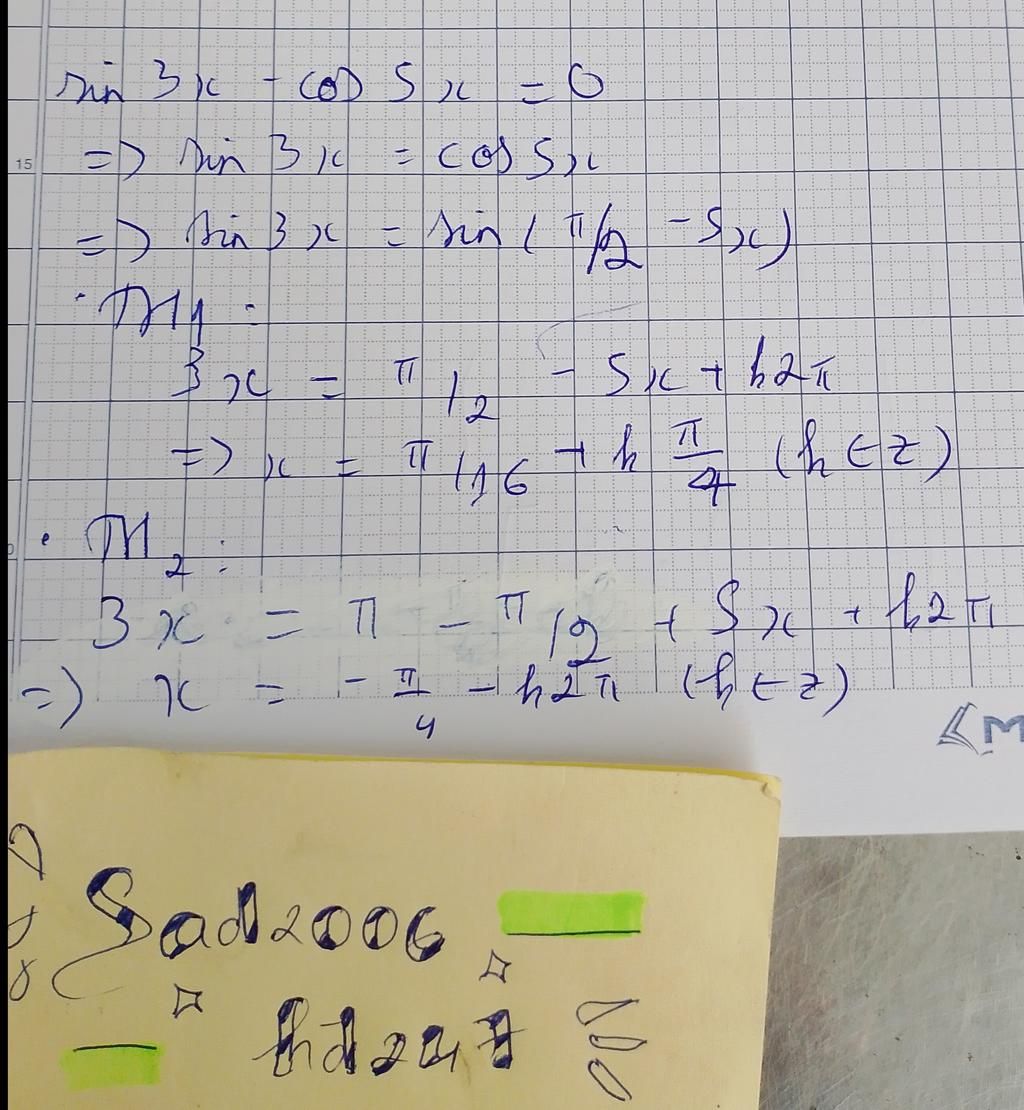 sin 3x - cos 5x = 0
15
=> sin 3x = cos 5x
=> sin 3x = sin ( π/2 - 5x)
· TH1 :
3x = π/2 - 5x + k2π
=> x = π/16 + k π/4 (k ∈ z)
· TH2 :
3x = π - π/2 + 5x + k2π
=> x = - π/4 - k2π (k ∈ z)
M
Sad2006
hd247